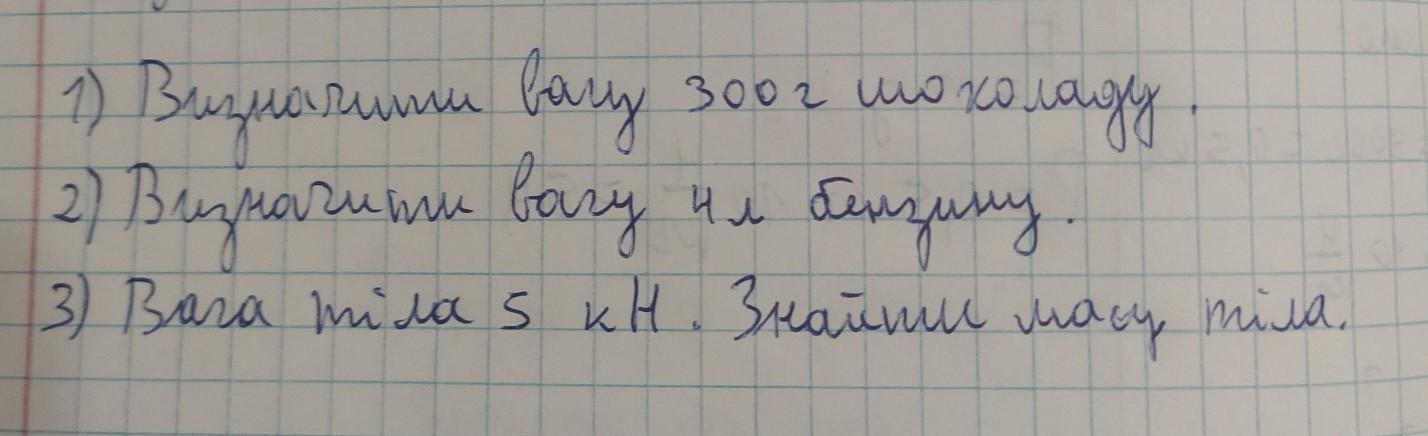 1) Визначити вагу 300 г шоколаду.
2) Визначити вагу 4 л бензину.
3) Вага тіла 5 кН. Знайти масу тіла.